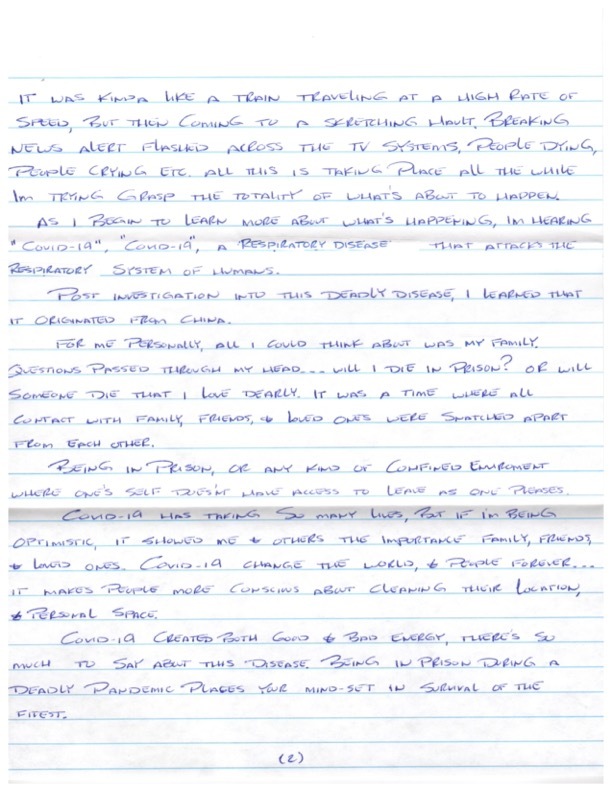 IT WAS KINDA LIKE A TRAIN TRAVELING AT A HIGH RATE OF
SPEED, BUT THEN COMING TO A SKRETCHING HAULT. BREAKING
NEWS ALERT FLASHED ACROSS THE TV SYSTEMS. PEOPLE DYING,
PEOPLE CRYING ETC. ALL THIS IS TAKING PLACE ALL THE WHILE
IM TRYING GRASP THE TOTALITY OF WHAT'S ABOUT TO HAPPEN.
AS I BEGIN TO LEARN MORE ABOUT WHAT'S HAPPENING, IM HEARING
"COVID-19", "COVID-19", A RESPIRATORY DISEASE THAT ATTACKS THE
RESPIRATORY SYSTEM OF HUMANS.
POST INVESTIGATION INTO THIS DEADLY DISEASE, I LEARNED THAT
IT ORIGINATED FROM CHINA.
FOR ME PERSONALLY, ALL I COULD THINK ABOUT WAS MY FAMILY.
QUESTIONS PASSED THROUGH MY HEAD... WILL I DIE IN PRISON? OR WILL
SOMEONE DIE THAT I LOVE DEARLY. IT WAS A TIME WHERE ALL
CONTACT WITH FAMILY, FRIENDS, & LOVED ONES WERE SNATCHED APART
FROM EACH OTHER.
BEING IN PRISON, OR ANY KIND OF CONFINED ENVIRMENT
WHERE ONE'S SELF DOESN'T HAVE ACCESS TO LEAVE AS ONE PLEASES.
COVID-19 HAS TAKING SO MANY LIVES, BUT IF I'M BEING
OPTIMISTIC, IT SHOWED ME & OTHERS THE IMPORTANCE FAMILY, FRIENDS,
& LOVED ONES. COVID-19 CHANGE THE WORLD, & PEOPLE FOREVER...
IT MAKES PEOPLE MORE CONSCIOUS ABOUT CLEANING THEIR LOCATION,
& PERSONAL SPACE.
COVID-19 CREATED BOTH GOOD & BAD ENERGY, THERE'S SO
MUCH TO SAY ABOUT THIS DISEASE. BEING IN PRISON DURING A
DEADLY PANDEMIC PLACES YOUR MIND-SET IN SURVIVAL OF THE
FITEST.
(2)